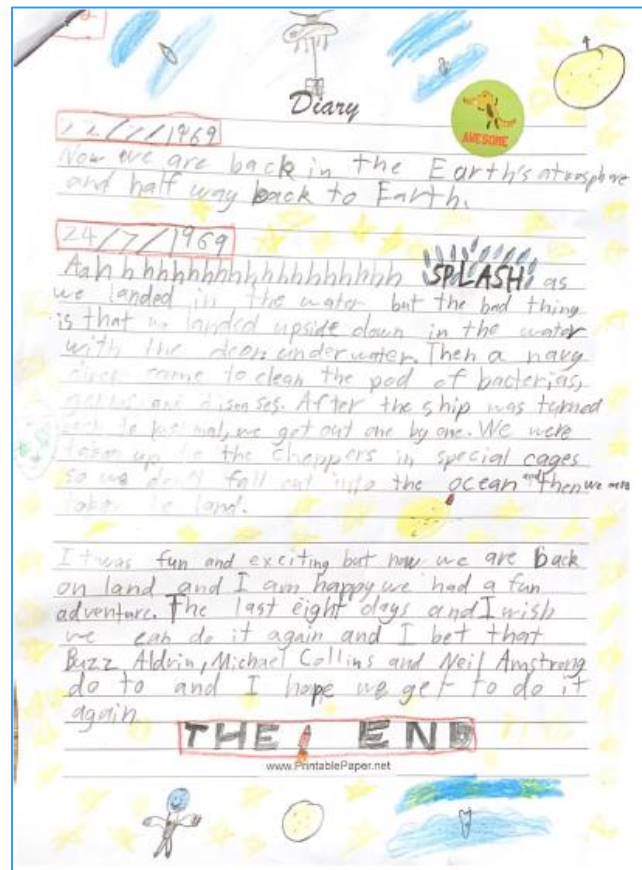 Diary
AWESOME
22/7/1969
Now we are back in the Earth's atmosphere
and half way back to Earth.
24/7/1969
Aahhhhhhhhhhhhhhhhhhhh SPLASH as
we landed in the water but the bad thing
is that we landed upside down in the water
with the door underwater. Then a navy
diver came to clean the pod of bacterias,
germs and diseases. After the ship was turned
back to normal, we got out one by one. We were
taken up to the choppers in special cages
so we don't fall out into the ocean and then we were
taken to land.
It was fun and exciting but now we are back
on land and I am happy we had a fun
adventure. The last eight days and I wish
we can do it again and I bet that
Buzz Aldrin, Michael Collins and Neil Amstrong
do to and I hope we get to do it
again
THE END
www.PrintablePaper.net